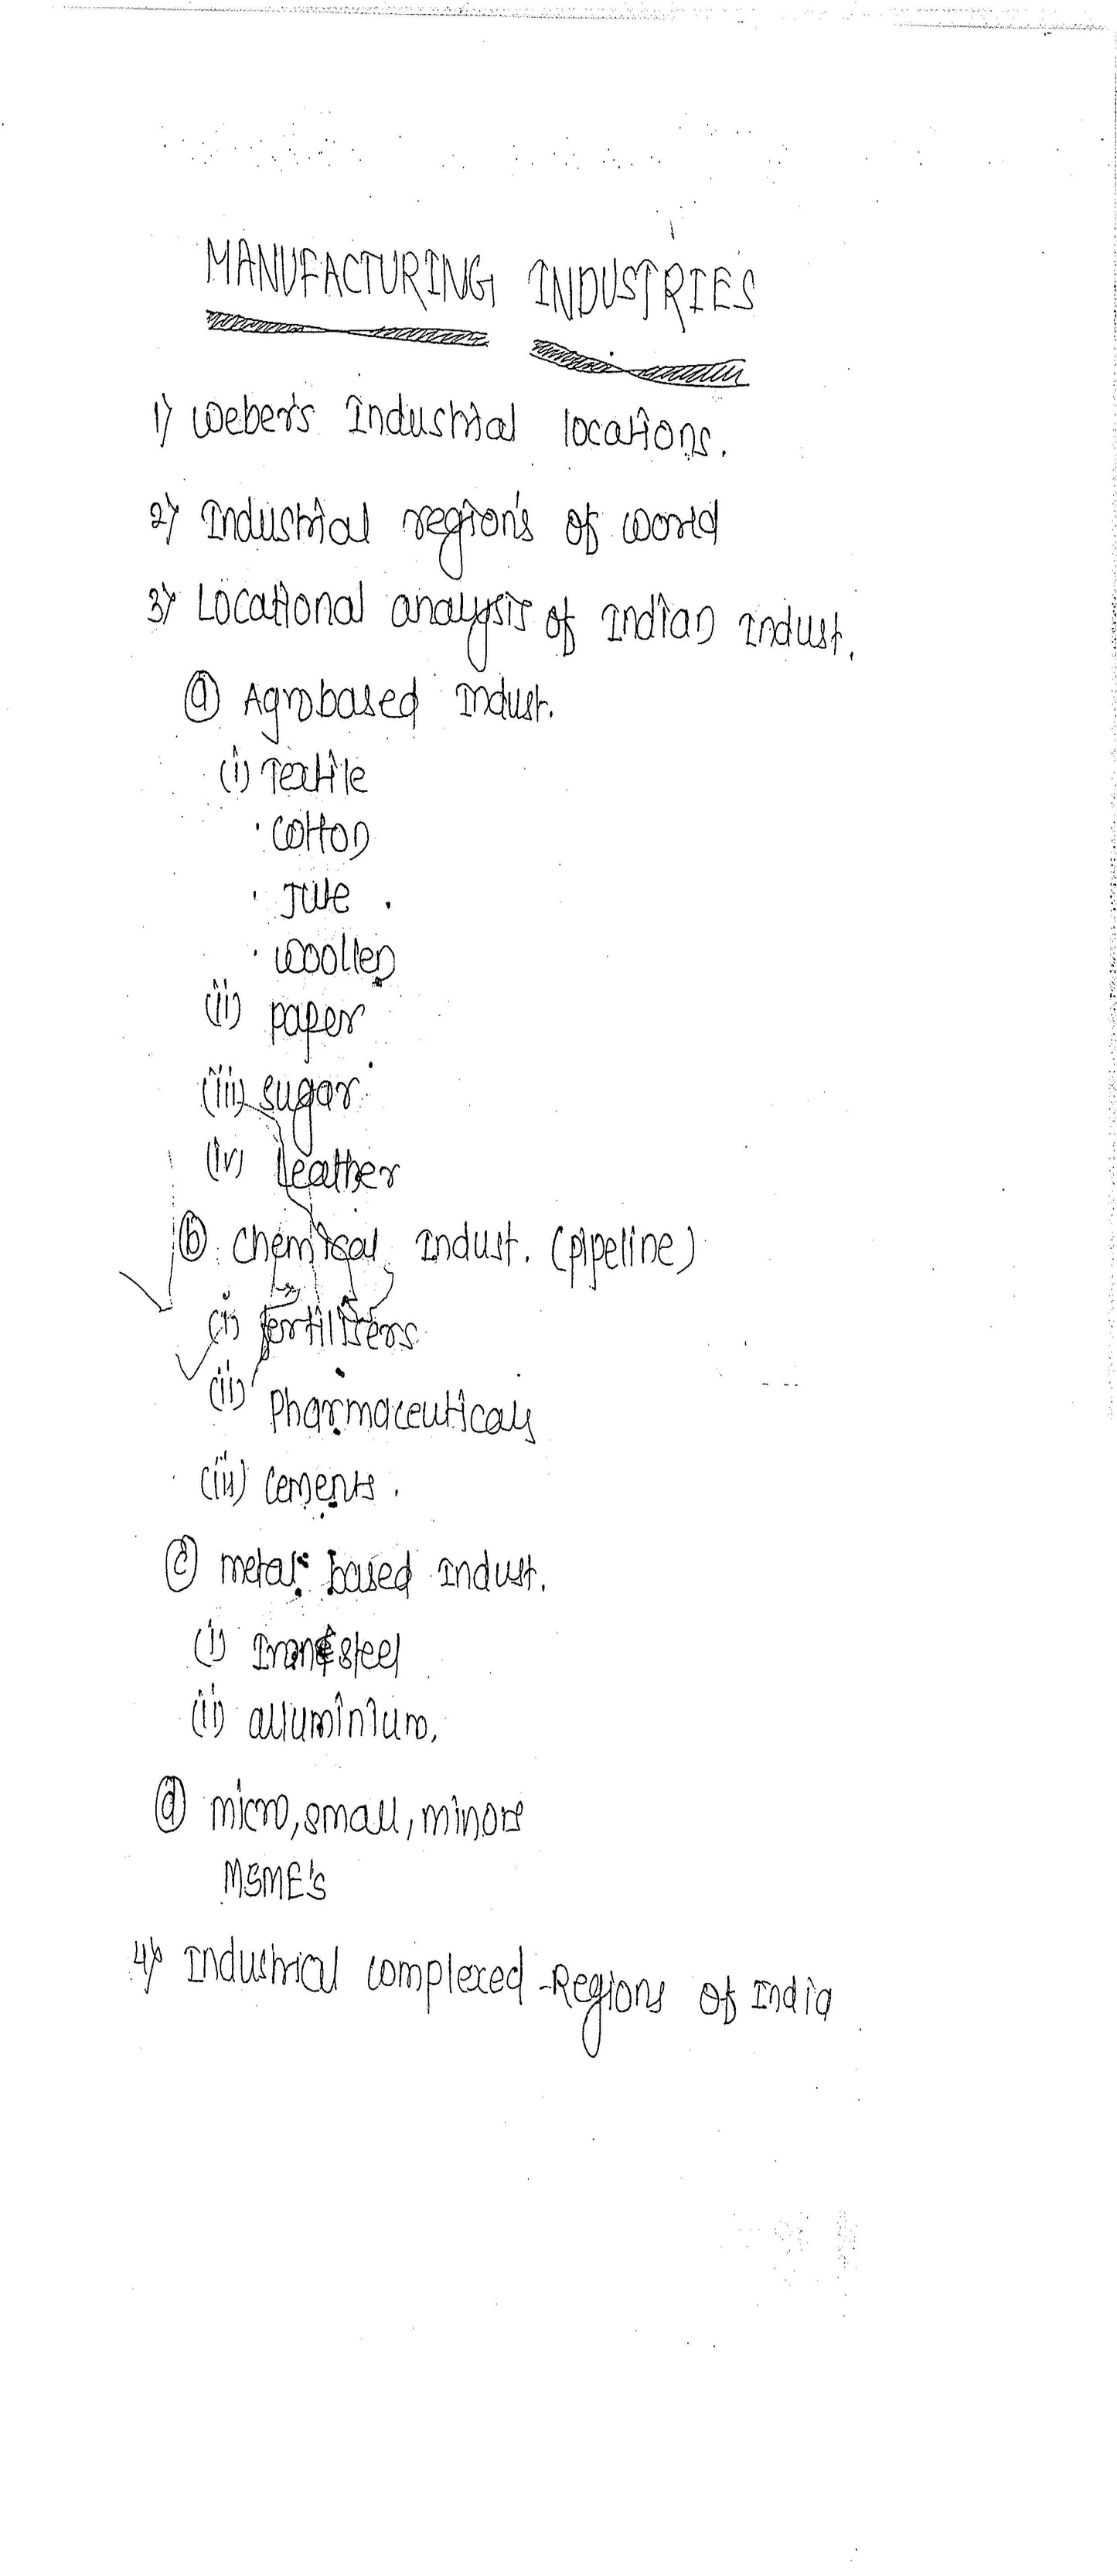 MANUFACTURING INDUSTRIES
1) Weber's Industrial locations.
2) Industrial region's of world
3) Locational analysis of Indian Indust.
(a) Agrobased Indust.
(i) Textile
· Cotton
· Jute .
· Woollen
(ii) paper
(iii) sugar
(iv) Leather
(b) Chemical Indust. (pipeline)
(i) fertilizers
(ii) Pharmaceuticals
(iii) Cements .
(c) metal based Indust.
(i) Iron & steel
(ii) alluminium.
(d) micro, small, minors
MSME's
4) Industrial complexed - Regions of India